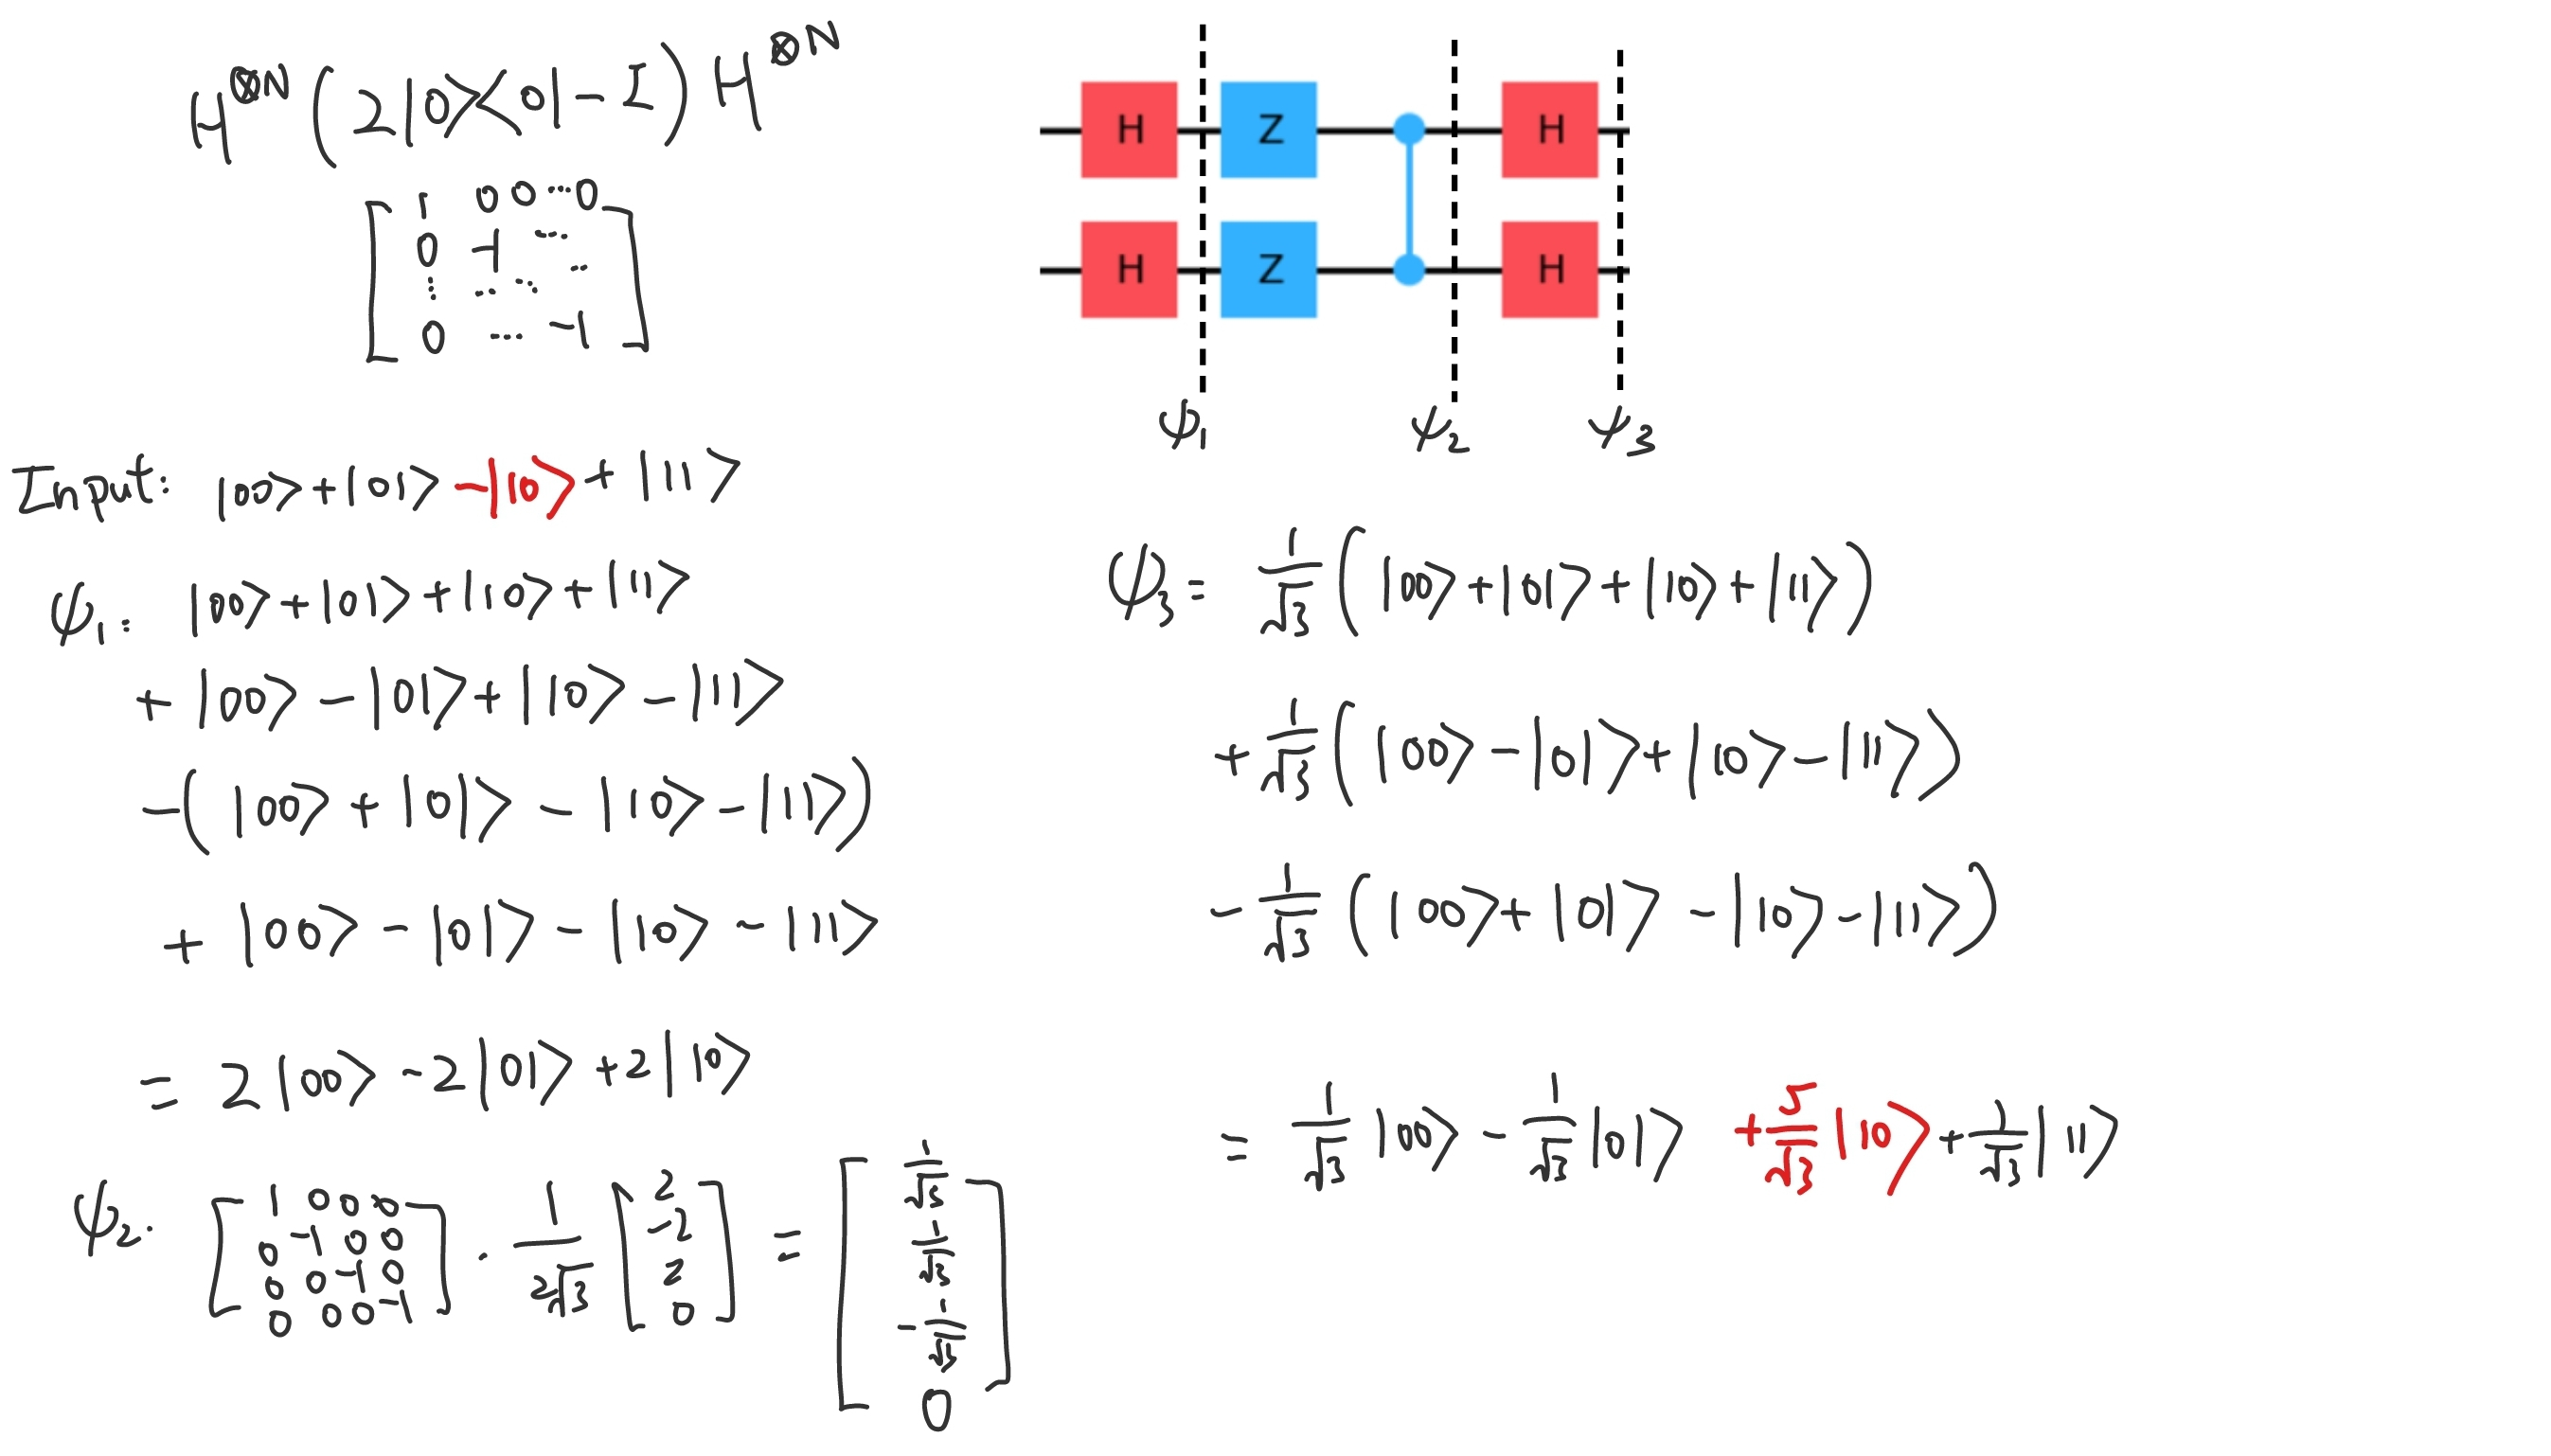 H⊗N (2|0><0| - I) H⊗N
1 0 0 ... 0
0 -1 ...
⋮ ... ⋱ ...
0 ... -1
H Z H
H Z H
ψ1 ψ2 ψ3
Input: |00> + |01> - |10> + |11>
ψ1: |00> + |01> + |10> + |11>
+ |00> - |01> + |10> - |11>
-( |00> + |01> - |10> - |11>)
+ |00> - |01> - |10> - |11>
= 2|00> - 2|01> + 2|10>
ψ2. [1 0 0 0; 0 -1 0 0; 0 0 -1 0; 0 0 0 -1] · 1/2√3 [2; -2; 2; 0] = [1/√3; 1/√3; -1/√3; 0]
ψ3 = 1/√3 (|00> + |01> + |10> + |11>)
+ 1/√3 (|00> - |01> + |10> - |11>)
- 1/√3 (|00> + |01> - |10> - |11>)
= 1/√3 |00> - 1/√3 |01> + 5/√3 |10> + 1/√3 |11>